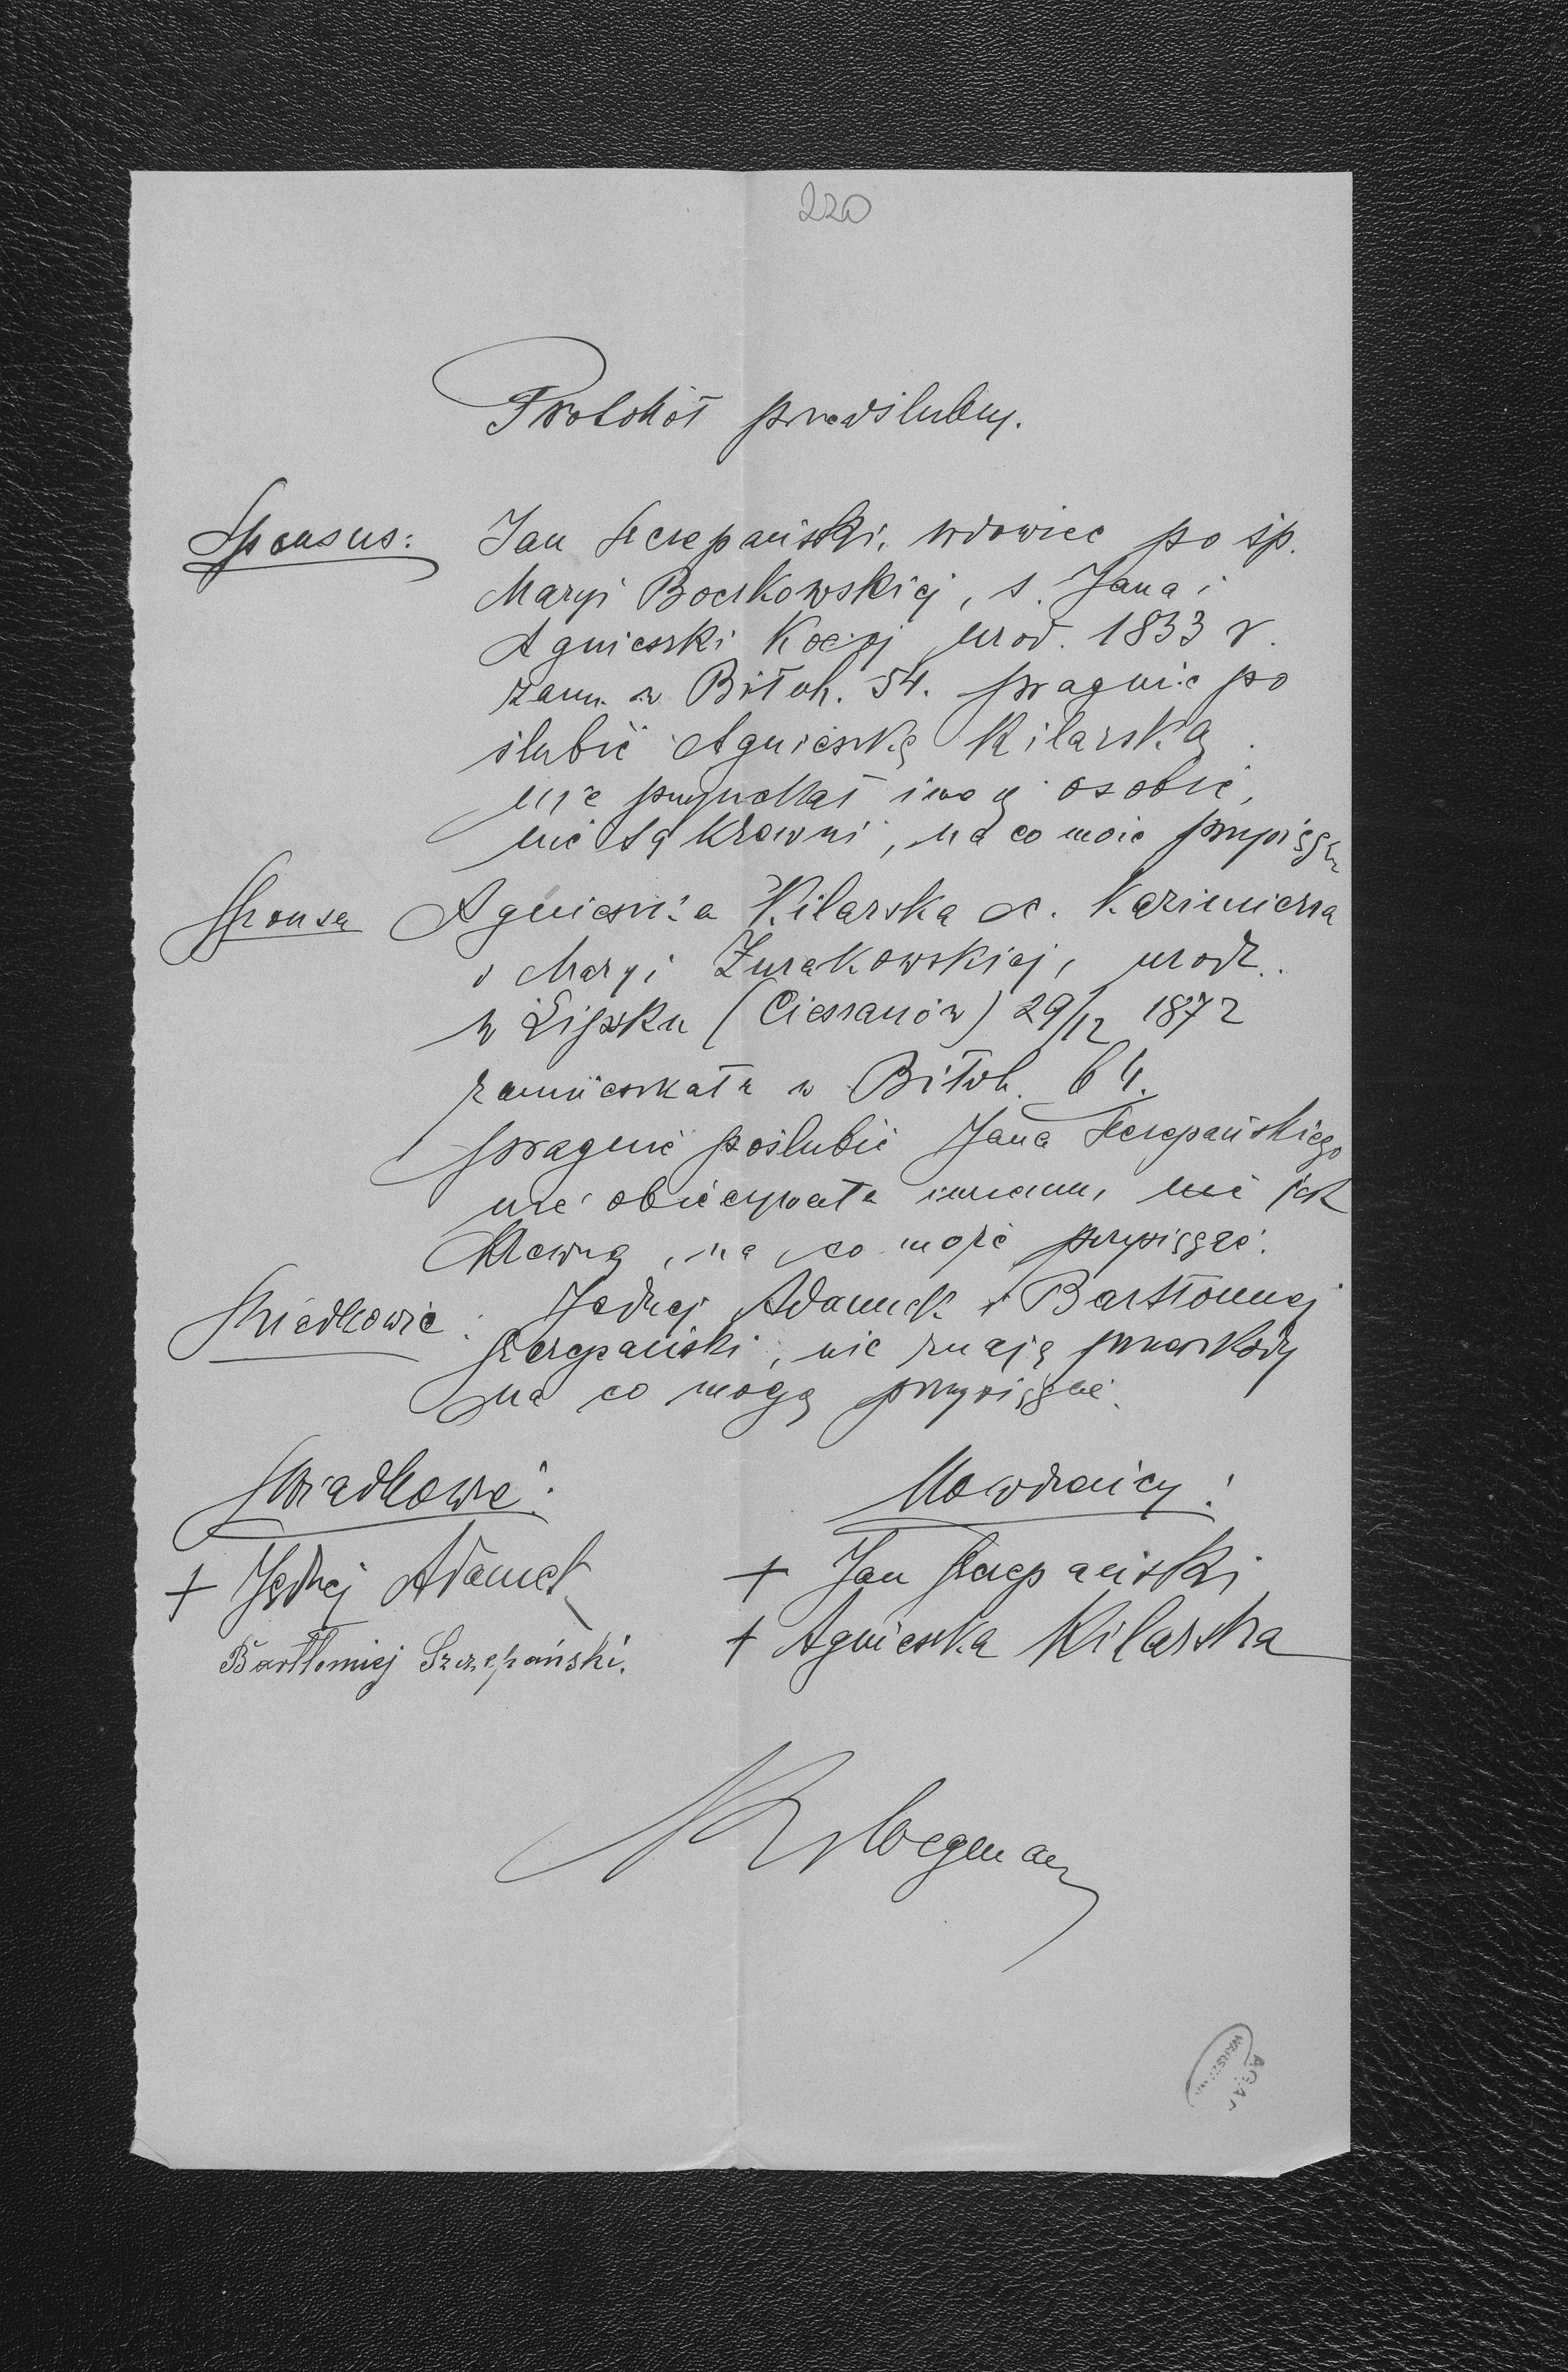 220
Protokół przedślubny.
Sponsus: Jan Szczepański, wdowiec po śp.
Maryi Boczkowskiej, s. Jana i
Agnieszki Koczoj urod. 1833 r.
zam. w Biłoh. 54. pragnie po
ślubić Agnieszkę Kilarską.
nie przyrzekał innej osobie,
nie są krewni, na co może przysięgać
Sponsa Agnieszka Kilarska c. Kazimierza
i Maryi Żurakowskiej, urodz.
w Lipsku (Cieszanów) 29/12 1872
zamieszkała w Biłoh. 64.
pragnie poślubić Jana Szczepańskiego
nie obiecywała innemu, nie jest
krewną, na co może przysięgać.
Świadkowie: Jędrzej Adamek i Bartłomiej
Szczepański, nie znają przeszkody
na co mogą przysięgać.
Świadkowie: Nowożeńcy:
+ Jędrzej Adamek + Jan Szczepański
Bartłomiej Szczepański. + Agnieszka Kilarska
AGAD
WARSZAWA